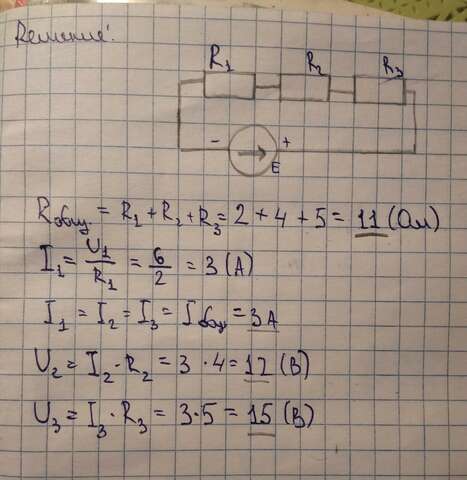 Решение:
R₁ R₂ R₃
- +
E
Rобщ = R₁ + R₂ + R₃ = 2 + 4 + 5 = 11 (Ом)
I₁ = U₁/R₁ = 6/2 = 3 (А)
I₁ = I₂ = I₃ = Iобщ = 3А
U₂ = I₂ · R₂ = 3 · 4 = 12 (В)
U₃ = I₃ · R₃ = 3 · 5 = 15 (В)